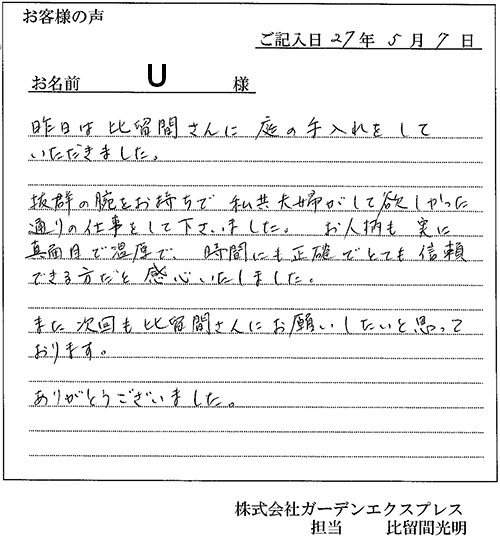 お客様の声
ご記入日 27年 5月 7日
お名前 U 様
昨日は比留間さんに庭の手入れをして
いただきました。
抜群の腕をお持ちで私共夫婦がして欲しかった
通りの仕事をして下さいました。 お人柄も実に
真面目で温厚で、時間にも正確でとても信頼
できる方だと感心いたしました。
また次回も比留間さんにお願いしたいと思って
おります。
ありがとうございました。
株式会社ガーデンエクスプレス
担当 比留間光明